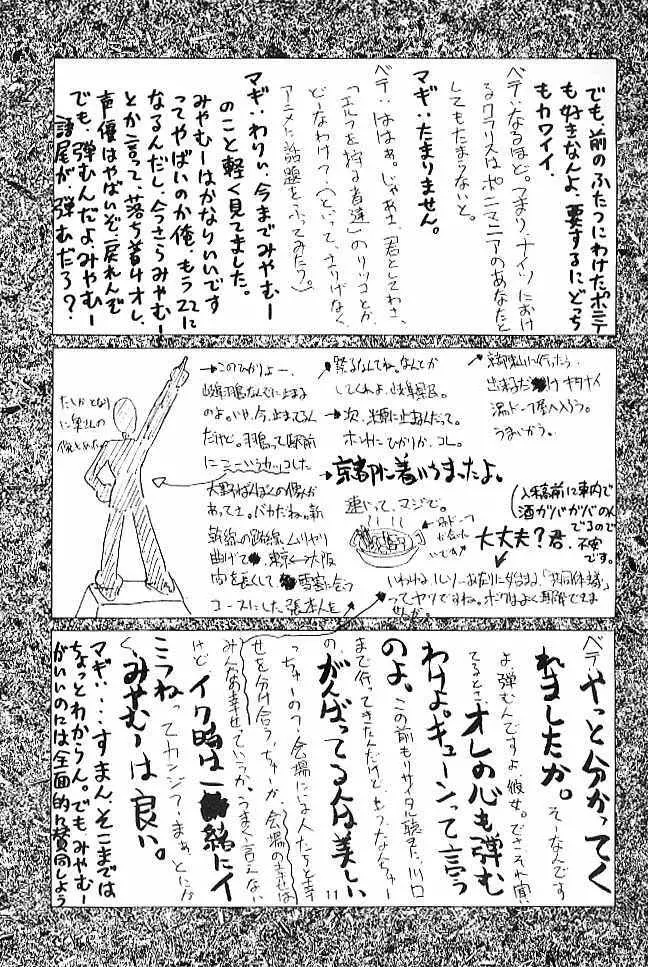 でも、前のふたつにわけたポニテ
も好きなんよ、要するにどっち
もカワイイ。
ベテ:なるほど。つまり、ナイツにおけ
るクラリスはポニマニアのあなたと
してもたまらないと。
マギ:たまりません。
ベテ:ははぁ。じゃあさ、君としてわさ、
「エルフを狩る者達」のリツコとか、
どーなわけ?(といって、さりげなく
アニメに話題をふってみたり。)
マギ:わりい、今までみやむー
のこと軽く見てました。
みやむーはかなりいいです
ってやばいのか俺、もう22に
なるんだし、今さらみやむー
とか言って、落ち着けオレ、
声優はやばいぞ、戻れんぞ
でも、弾むんだよみやむー
語尾が弾むだろ?
京都に行ったら
うまいかう。
(入稿前に車内で
酒ガバガバのん
でるので
不安
です。
大丈夫?君、
してくれよ、岐阜県民。
→次、米原に止まるんだって。
ホントにひかりか、コレ。
→京都に着いちまったよ。
速いって、マジで。
→このひかりよー、
岐阜羽島なんぞに止まる
のよ。いや、今、止まってるん
だけど。羽島って駅前
にニーッカッコした
大野ばんぼくの像が
あってさ。バカだね。新
幹線の路線、ムリヤリ
曲げて 東京↔大阪
間を長くして 雪害に会う
コースにした張本人を
たしかとなり
に奥さんの
像もたった
「共同体主義」
ってヤツですね。ボクはよく理解できま
せんが。
ベテ:やっと分かってく
れましたか。そーなんです
よ、弾むんですよ、彼女。でさ、それ聞い
てるとさ、オレの心も弾む
わけよ。キューンって言う
のよ、この前もリサイタル聴きに川口
まで行ってきたんだけど、もうなんちゅー
の、がんばってる人は美しい
っちゅーの?、会場にいる人たちと幸
せを分け合う、ちゅーか、会場の幸せは
みんなの幸せっていうか、うまく言えない
けど、イク時は一緒にイ
こうねってカンジ?、まぁ、とにか
く、みやむーは良い。
マギ:…すまん、そこまでは
ちょっとわからん。でもみやむー
がいいのには全面的に賛同しよう